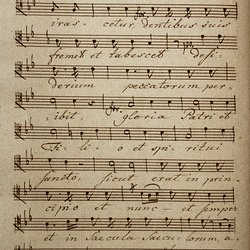 iras- cetur, dentibus suis
fremet et tabescet desi-
derium peccatorum per-
ibit, gloria Patri et
Fi- li- o et spi- ritui
sancto, sicut erat in prin-
cipio et nunc et semper
et in saecula saecu- lorum, a-